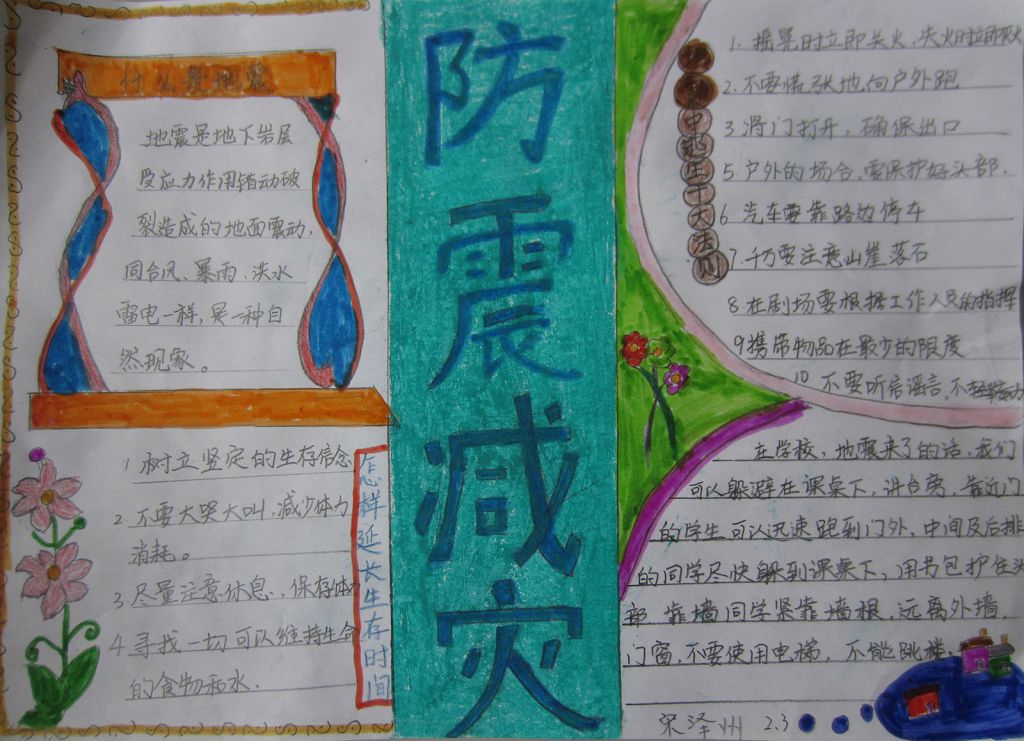 什么是地震
地震是地下岩层
受应力作用错动破
裂造成的地面震动.
同台风、暴雨、洪水
雷电一样,是一种自
然现象。
1 树立坚定的生存信念
2. 不要大哭大叫,减少体力
消耗。
3. 尽量注意休息,保存体力
4 寻找一切可以维持生命
的食物和水.
怎样延长生存时间
防震减灾
中逃生十大法则
1. 摇晃时立即关火,失火时立即灭火
2. 不要慌张地向户外跑
3 将门打开,确保出口
5. 户外的场合,要保护好头部.
6 汽车要靠路边停车
7. 千万要注意山崖落石
8 在剧场要根据工作人员的指挥
9 携带物品在最少的限度
10 不要听信谣言,不轻举妄动
在学校,地震来了的话,我们
可以躲避在课桌下,讲台旁,靠近门
的学生可以迅速跑到门外,中间及后排
的同学尽快躲到课桌下,用书包护住头
部 靠墙同学紧靠墙根,远离外墙,
门窗,不要使用电梯,不能跳楼.
宋泽州 2.3